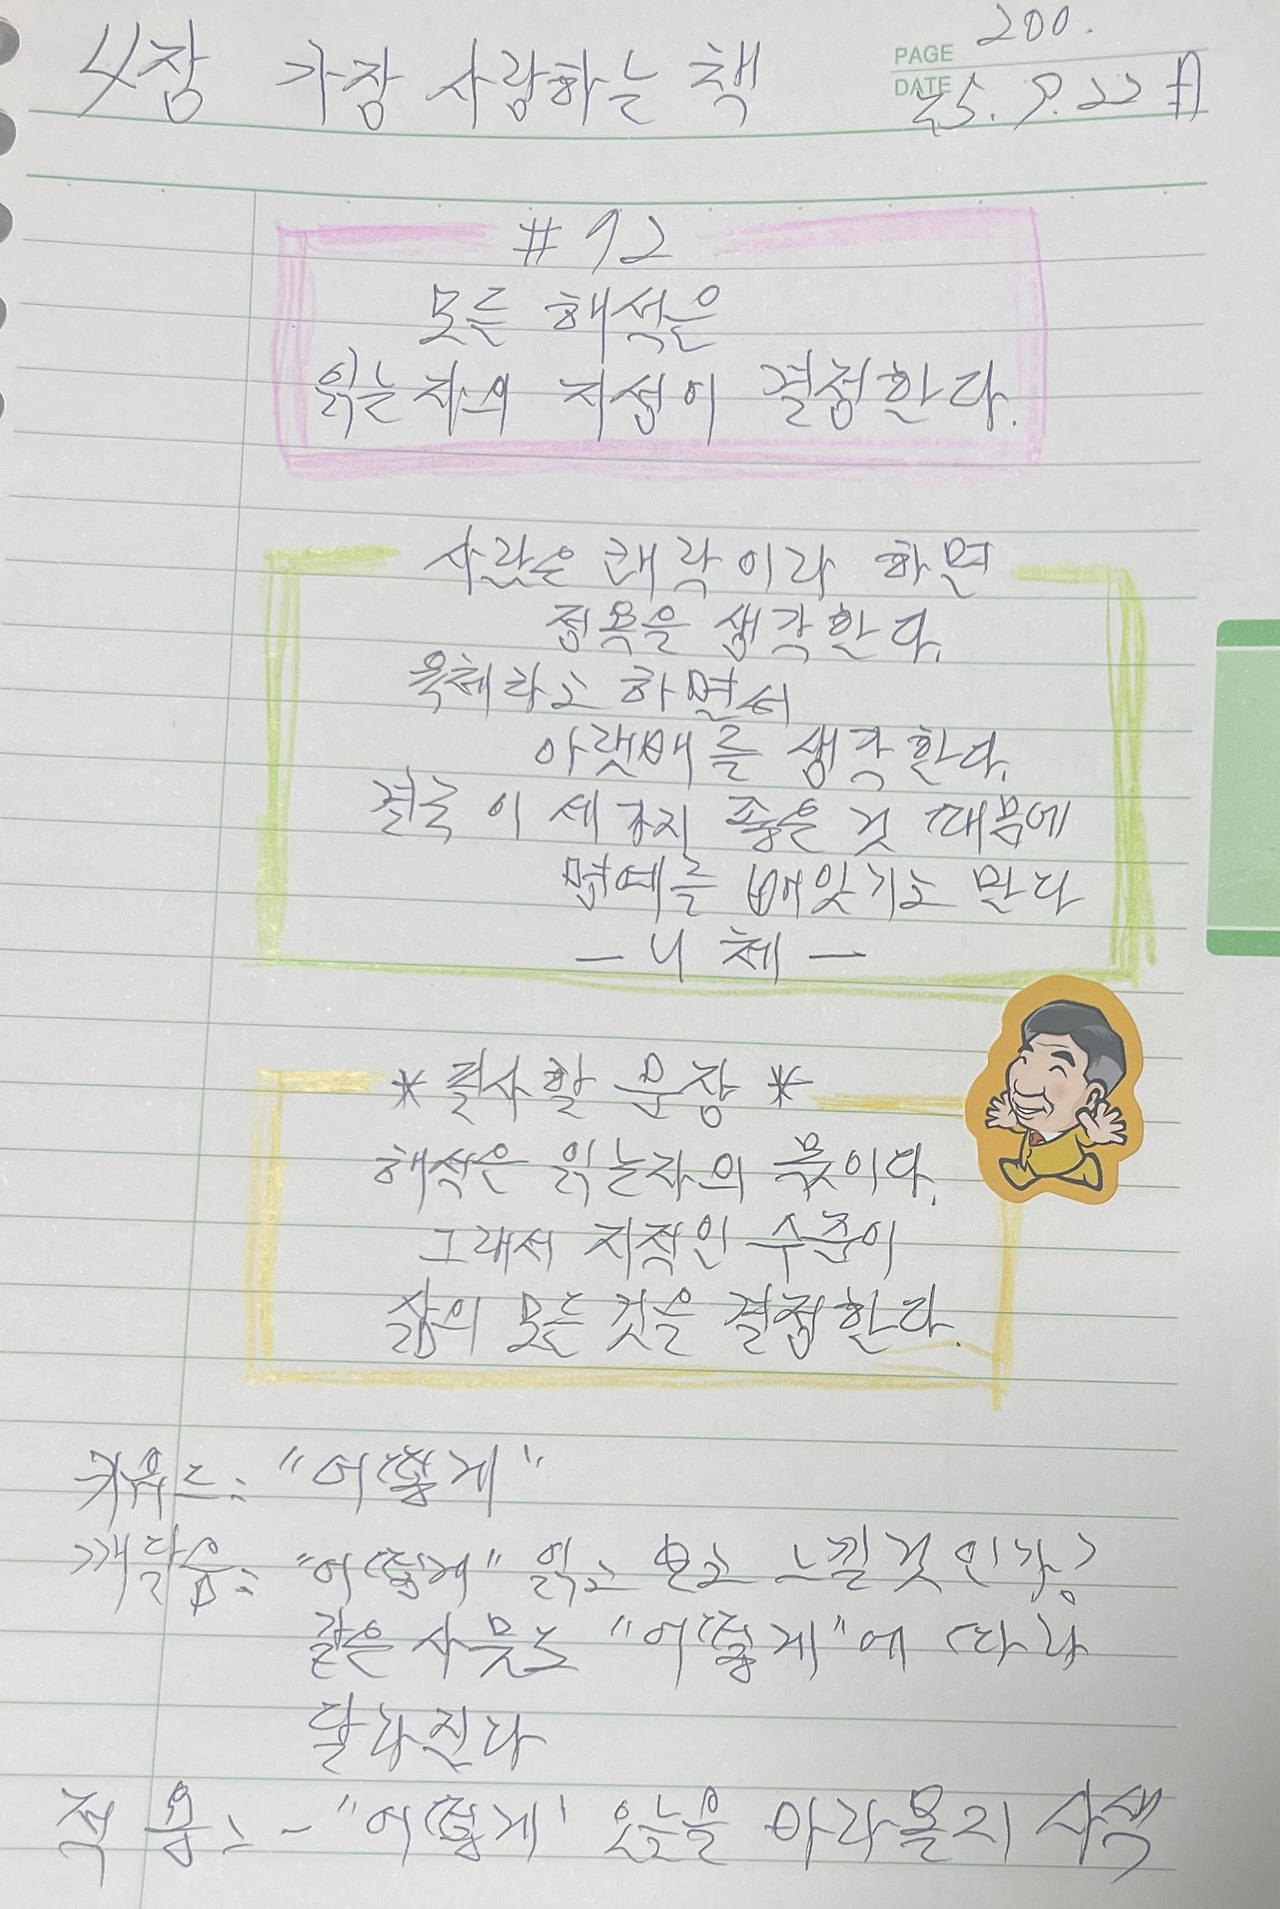 4장 가장 사랑하는 책
PAGE 200.
DATE 25. 9. 22 월
#92
모든 해석은
읽는자의 지성이 결정한다.
사람은 쾌락이라 하면
정욕을 생각한다.
육체라고 하면서
아랫배를 생각한다.
결국 이 세가지 좋은 것 때문에
명예를 빼앗기고 만다
- 니체 -
* 필사할 문장 *
해석은 읽는자의 몫이다.
그래서 지적인 수준이
삶의 모든 것을 결정한다.
키워드: "어떻게"
깨달음: "어떻게" 읽고 보고 느낄것인가?
같은 사물도 "어떻게"에 따라
달라진다
적용: - "어떻게" 오늘을 바라볼지 사색